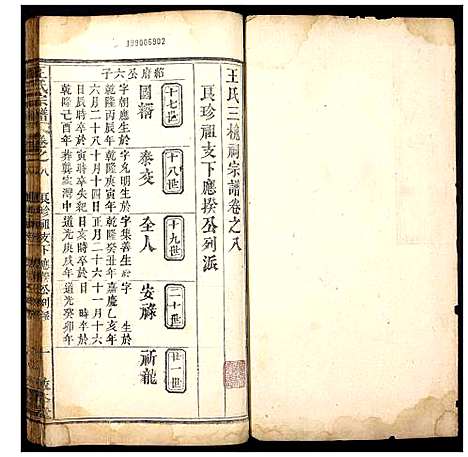 199006902
王氏三槐祠宗譜卷之八
良珍祖支下應揆公列派
紹府公六子
十七世
國縉
字朝應生於
乾隆丙辰年
六月二十八
日辰時卒於
乾隆己酉年
十八世
泰交
字允明生於
乾隆庚寅年
十月十四日
十九世
全人
字集善生於
乾隆癸丑年
正月二十六
日亥時卒於
道光庚戌年
二十世
安祿
字 生於
嘉慶乙亥年
十一月十六
日 時卒於
道光癸卯年
廿一世
祈龍
王氏宗譜
卷之八
良珍祖支下應揆公列派
一